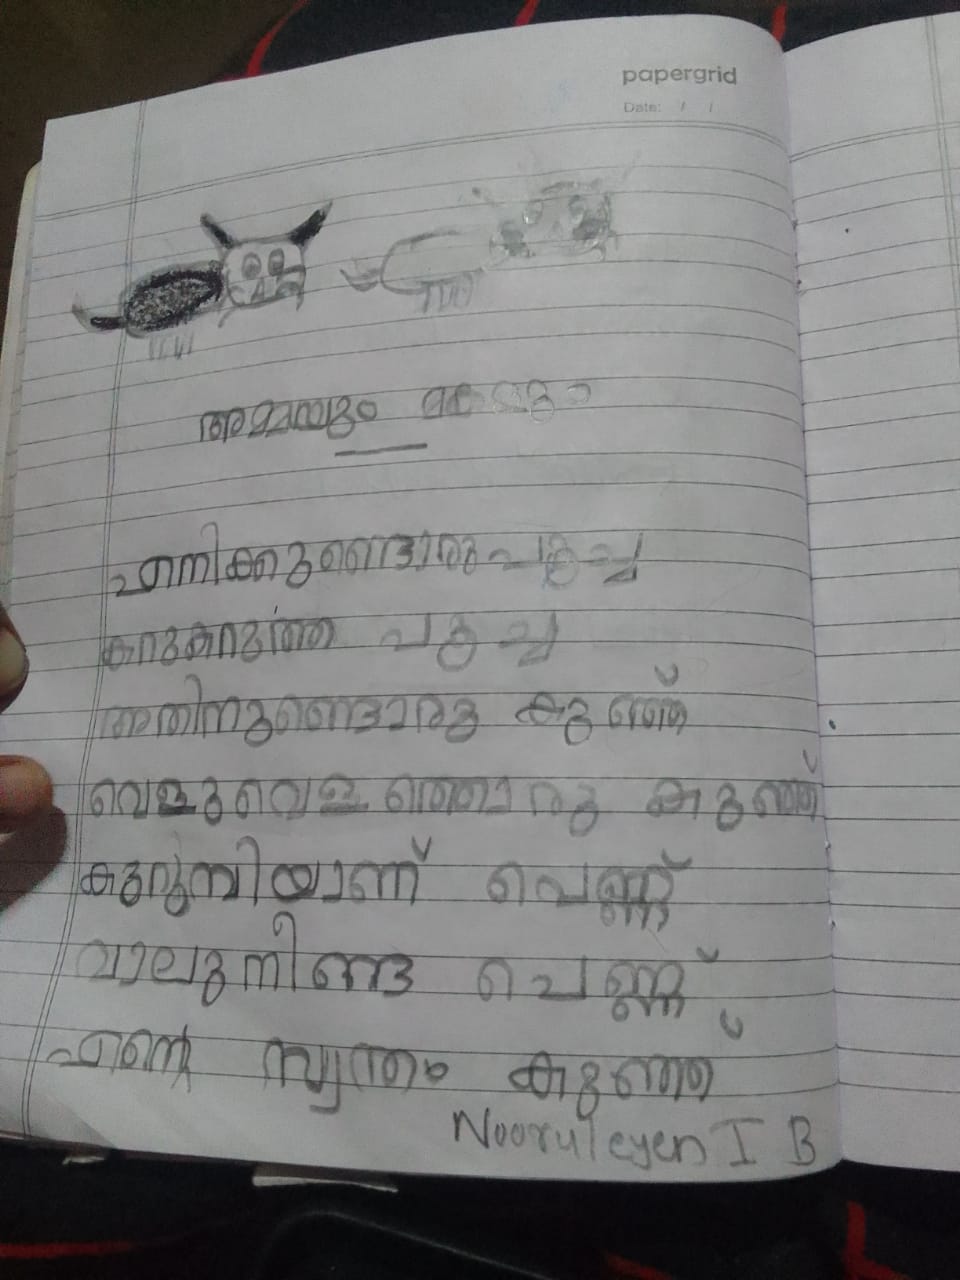 papergrid
Date: / /
അമ്മയും മകളും
എനിക്കുണ്ടൊരു പൂച്ച
കറുകറുത്ത പൂച്ച
അതിനുണ്ടൊരു കുഞ്ഞ്
വെളുവെളുത്തൊരു കുഞ്ഞ്
കുറുമ്പിയാണ് പെണ്ണ്
വാലുനീണ്ട പെണ്ണ്
എന്റെ സ്വന്തം കുഞ്ഞ്
Noorul eyen I B